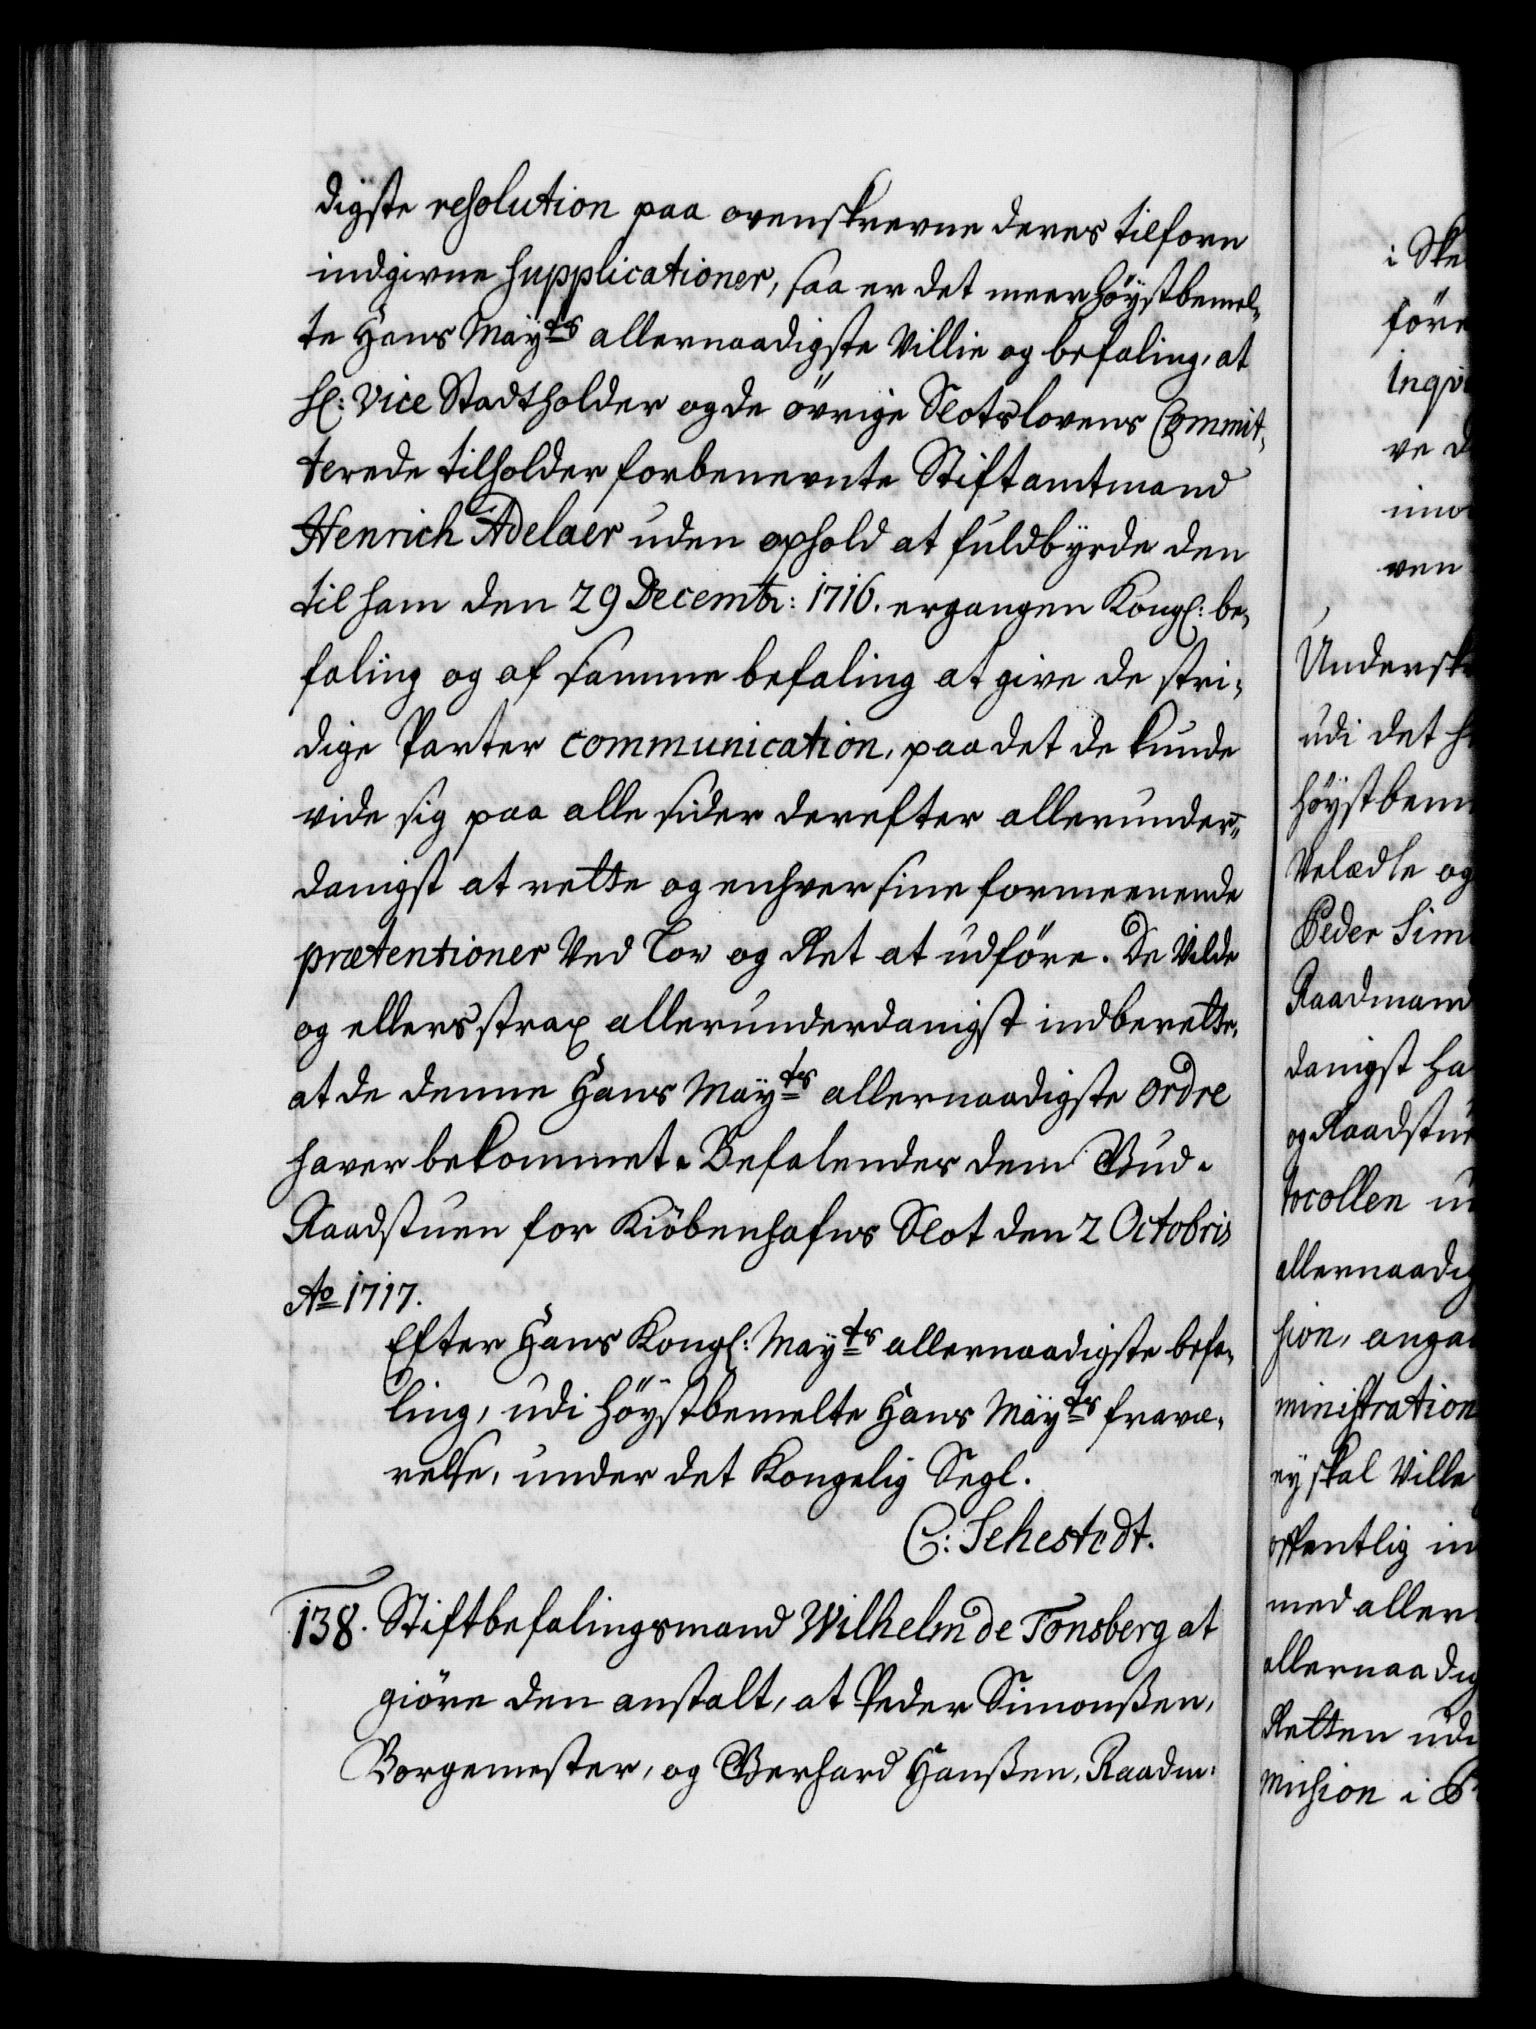 digste resolution paa ovenskrevne deres tilforn
indgivne supplicationer, saa er det meer höÿstbemel-
te Hans Maÿts allernaadigste Villie og befaling, at
Hl: Vice Stadtholder og de övrige Slotslovens Commit-
terede tilholder forbenevnte Stiftamtmand
Henrich Adelaer uden ophold at fuldbÿrde den
til ham den 29 Decembr: 1716. ergangen Kongl: be-
faling og af samme befaling at give de stri-
dige Parter communication, paa det de kunde
vide sig paa alle sider derefter allerunder-
danigst at rette og enhver sine formeenende
prætentioner Ved Lov og Ret at udföre. De Vilde
og ellers strax allerunderdanigst indberette,
at de denne Hans Maÿts allernaadigste ordre
haver bekommet. Befalendes dem Gud.
Raadstuen for Kiöbenhafns Slot den 2 Octobris
Ao 1717.
Efter Hans Kongl: Maÿts allernaadigste befa-
ling, udi höÿstbemelte Hans Maÿts fravæ-
relse, under det Kongelig Segl.
C: Sehestedt.
138. Stiftbefalingsmand Wilhelm de Tonsberg at
giöre den anstalt, at Peder Simonßen,
Borgemester, og Gerhard Hanßen, Raadm-
i Ske
före
inqvi
ve d
imo
ven
Underskr
udi det h
höÿstbem
Velædle og
Peder Sim
Raadmand
danigst ha
og Raadstue
tocollen u
allernaadig
sion, anga
ministration
eÿ skal Ville
offentlig in
med aller
allernaadig
Retten udi
mission i